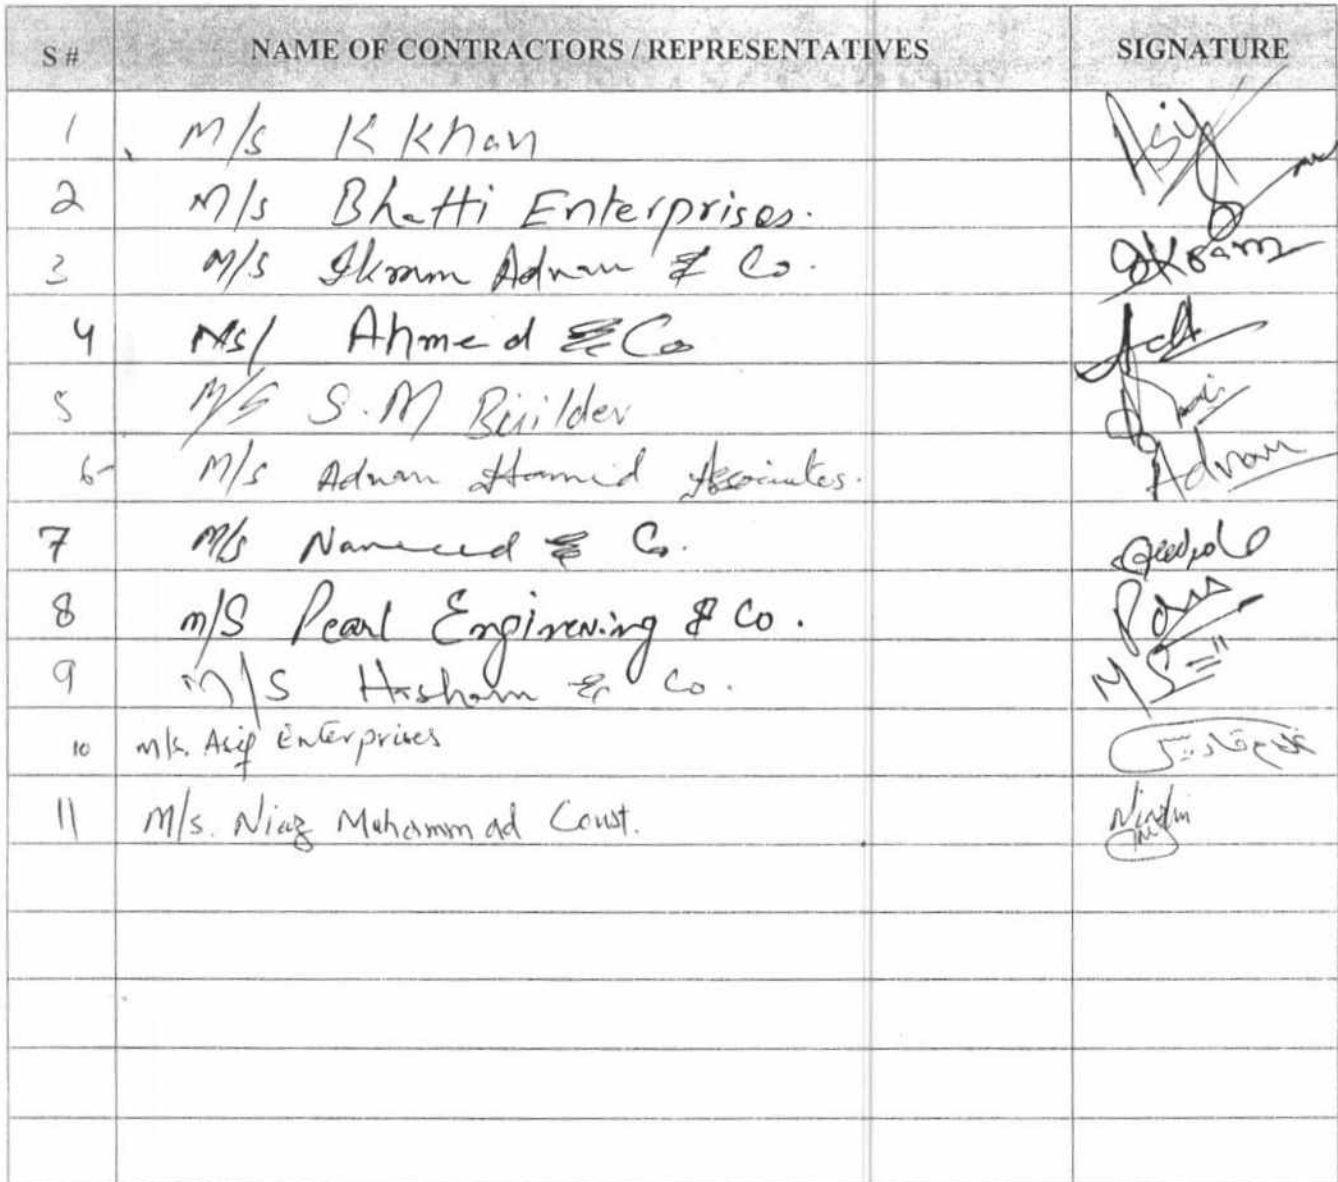 S # NAME OF CONTRACTORS / REPRESENTATIVES SIGNATURE
1 M/s K Khan Asif
2 M/s Bhatti Enterprises.
3 M/s Ikram Adnan & Co. Ikram
4 Ms/ Ahmed & Co
5 M/S S.M Builder
6 M/s Adnan Hamid Associates. Adnan
7 M/s & Co.
8 m/S Pearl Enginering & Co.
9 M/S Hisham & Co. MS
10 m/s. Asif Enterprises
11 M/s. Niaz Muhammad Const.